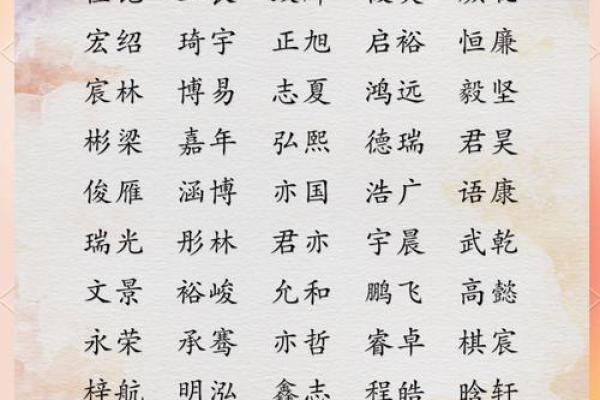 宏绍 琦宇 正旭 启裕 恒廉
宸林 博易 志夏 鸿远 毅坚
彬梁 嘉年 弘熙 德瑞 君昊
俊雁 涵博 亦国 浩广 语康
瑞光 彤林 君亦 宇晨 武乾
文景 裕峻 允和 鹏飞 高懿
永荣 承骞 亦哲 睿卓 棋宸
梓航 明泓 鑫志 程皓 晗轩